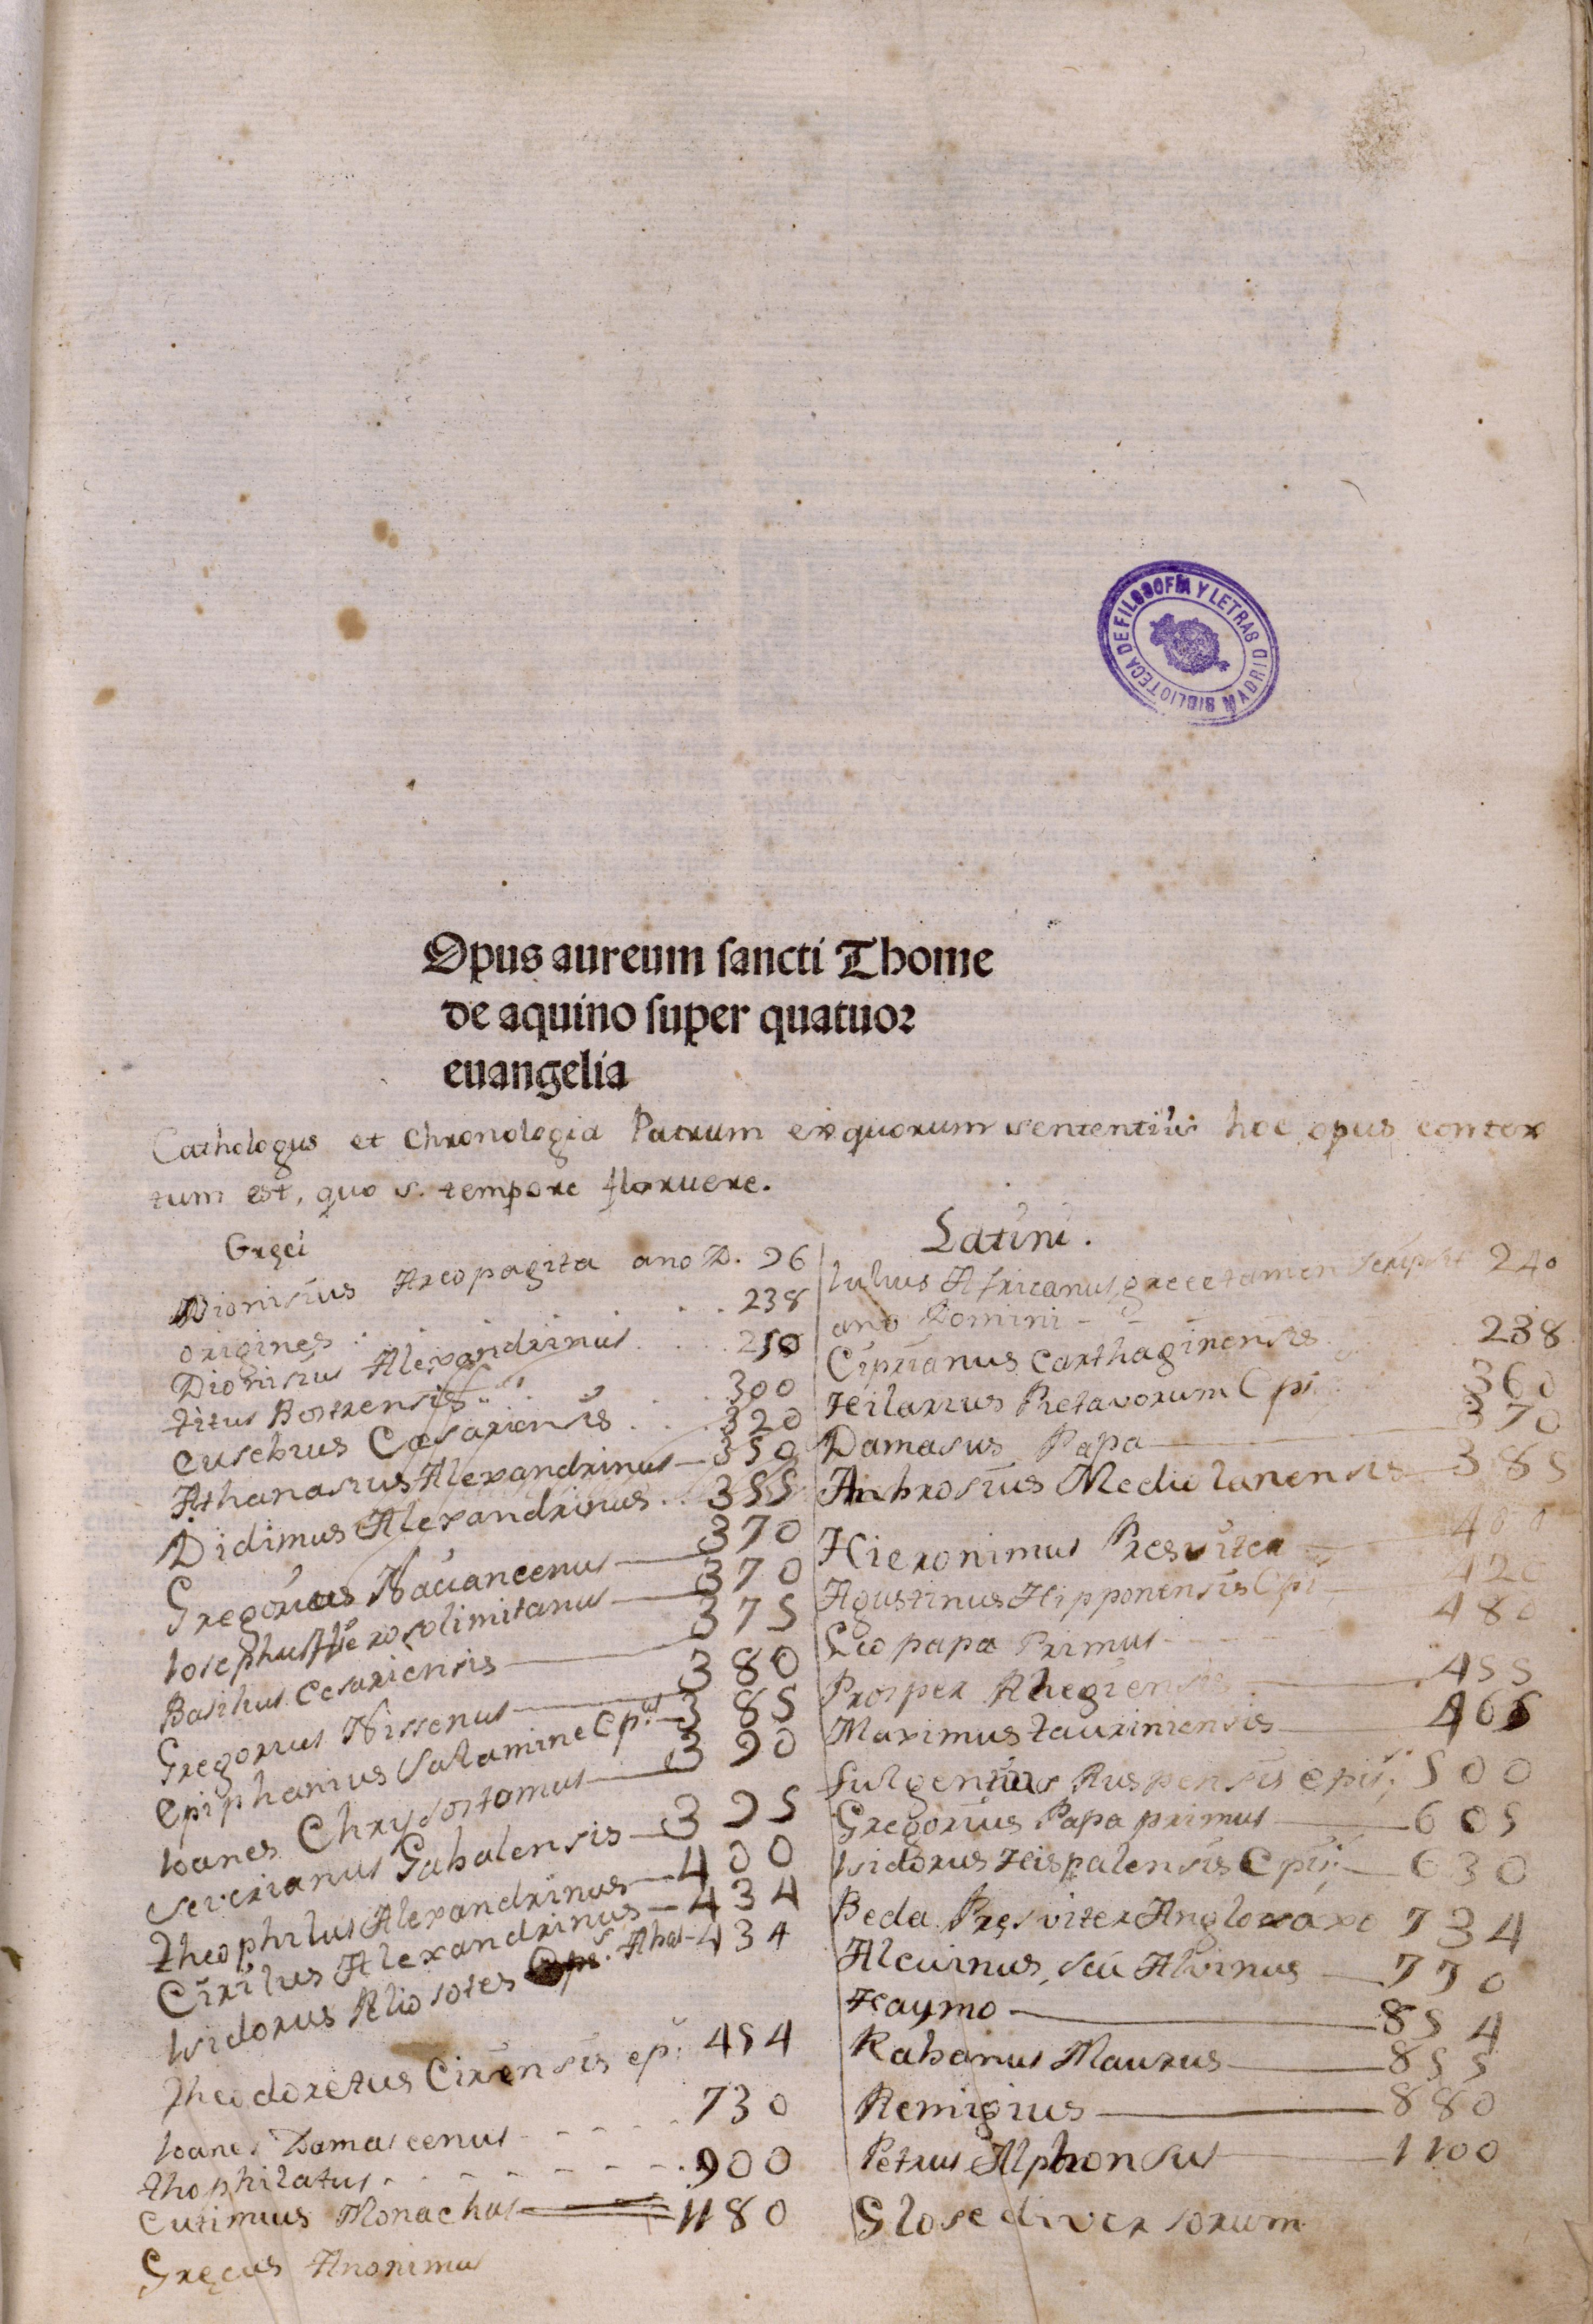 BIBLIOTECA DE FILOSOFIA Y LETRAS MADRID
Opus aureum sancti Thome
de aquino super quatuor
euangelia
Cathologus et Chronologia Patrum ex quorum sententiis hoc opus contex
tum est, quo s. tempore floruere.
Gręci
Dionisius Areopagita ano D. 96
origines . . . . 238
Dionisius Alexandrinus . . . . 250
titus Bostrensis . . . 300
eusebius Cesariensis . . . . 320
Athanasius Alexandrinus — 350
Didimus Alexandrinus . . 355
Gregorius Nacianzenus — 370
Iosephus Hierosolimitanus — 370
Basilius cesariensis — 375
Gregorius Nissenus — 380
epiphanius Salamine Cp.us — 385
Ioanes Chrysostomus — 390
Severianus Gabalensis — 395
theophilus Alexandrinus — 400
Cirilus Alexandrinus — 434
Isidorus Peliosotes Abas - 434
theodoretus Cirensis ep: 454
Ioanes Damascenus - - - - 730
thophilatus - - - - - - 900
eutimius Monachus — 1180
Gręcus Anonimus
Latini.
Iulius Africanus, grece tamen scripsit 240
ano Domini - -
Ciprianus Carthaginensis 238
Hilarius Pictavorum Cpi 360
Damasus Papa — 370
Anbrosius Mediolanensis 385
Hieronimus Presviter — 400
Agustinus Hipponensis Cpi — 420
Leo papa Primus - 480
Prosper Rhegiensis — 455
Maximus tauriniensis — 465
fulgentius Ruspensis epis. 500
Gregorius Papa primus — 605
Isidorus Hispalensis Cpis. — 630
Beda Pręsviter Angloxaxo 734
Alcuinus, seu Alvinus — 770
Haymo — 854
Rabanus Maurus — 855
Remigius — 880
Petrus Alphonsus — 1100
Glose diversorum